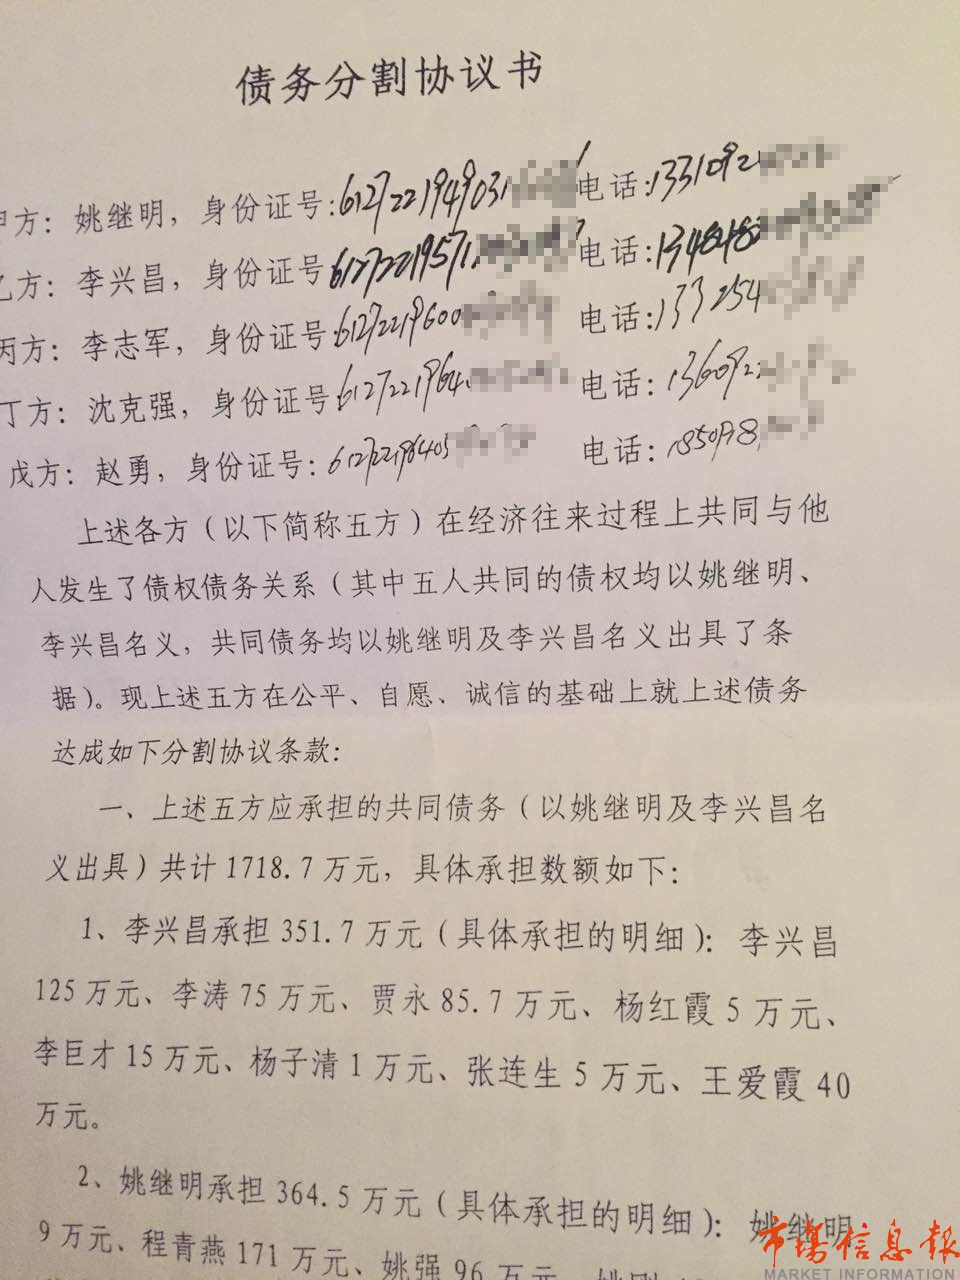 债务分割协议书
甲方：姚继明，身份证号：6127221949031 电话：1331092
乙方：李兴昌，身份证号61272219571 电话：1348483
丙方：李志军，身份证号6127221960 电话：133254
丁方：沈克强，身份证号6127221964 电话：136092
戊方：赵勇，身份证号：612722196405 电话：
上述各方（以下简称五方）在经济往来过程上共同与他
人发生了债权债务关系（其中五人共同的债权均以姚继明、
李兴昌名义，共同债务均以姚继明及李兴昌名义出具了条
据）。现上述五方在公平、自愿、诚信的基础上就上述债务
达成如下分割协议条款：
一、上述五方应承担的共同债务（以姚继明及李兴昌名
义出具）共计1718.7万元，具体承担数额如下：
1、李兴昌承担351.7万元（具体承担的明细）：李兴昌
125万元、李涛75万元、贾永85.7万元、杨红霞5万元、
李巨才15万元、杨子清1万元、张连生5万元、王爱霞40
万元。
2、姚继明承担364.5万元（具体承担的明细）：姚继明
9万元、程青燕171万元、姚强96万元、姚刚
市场信息报
MARKET INFORMATION